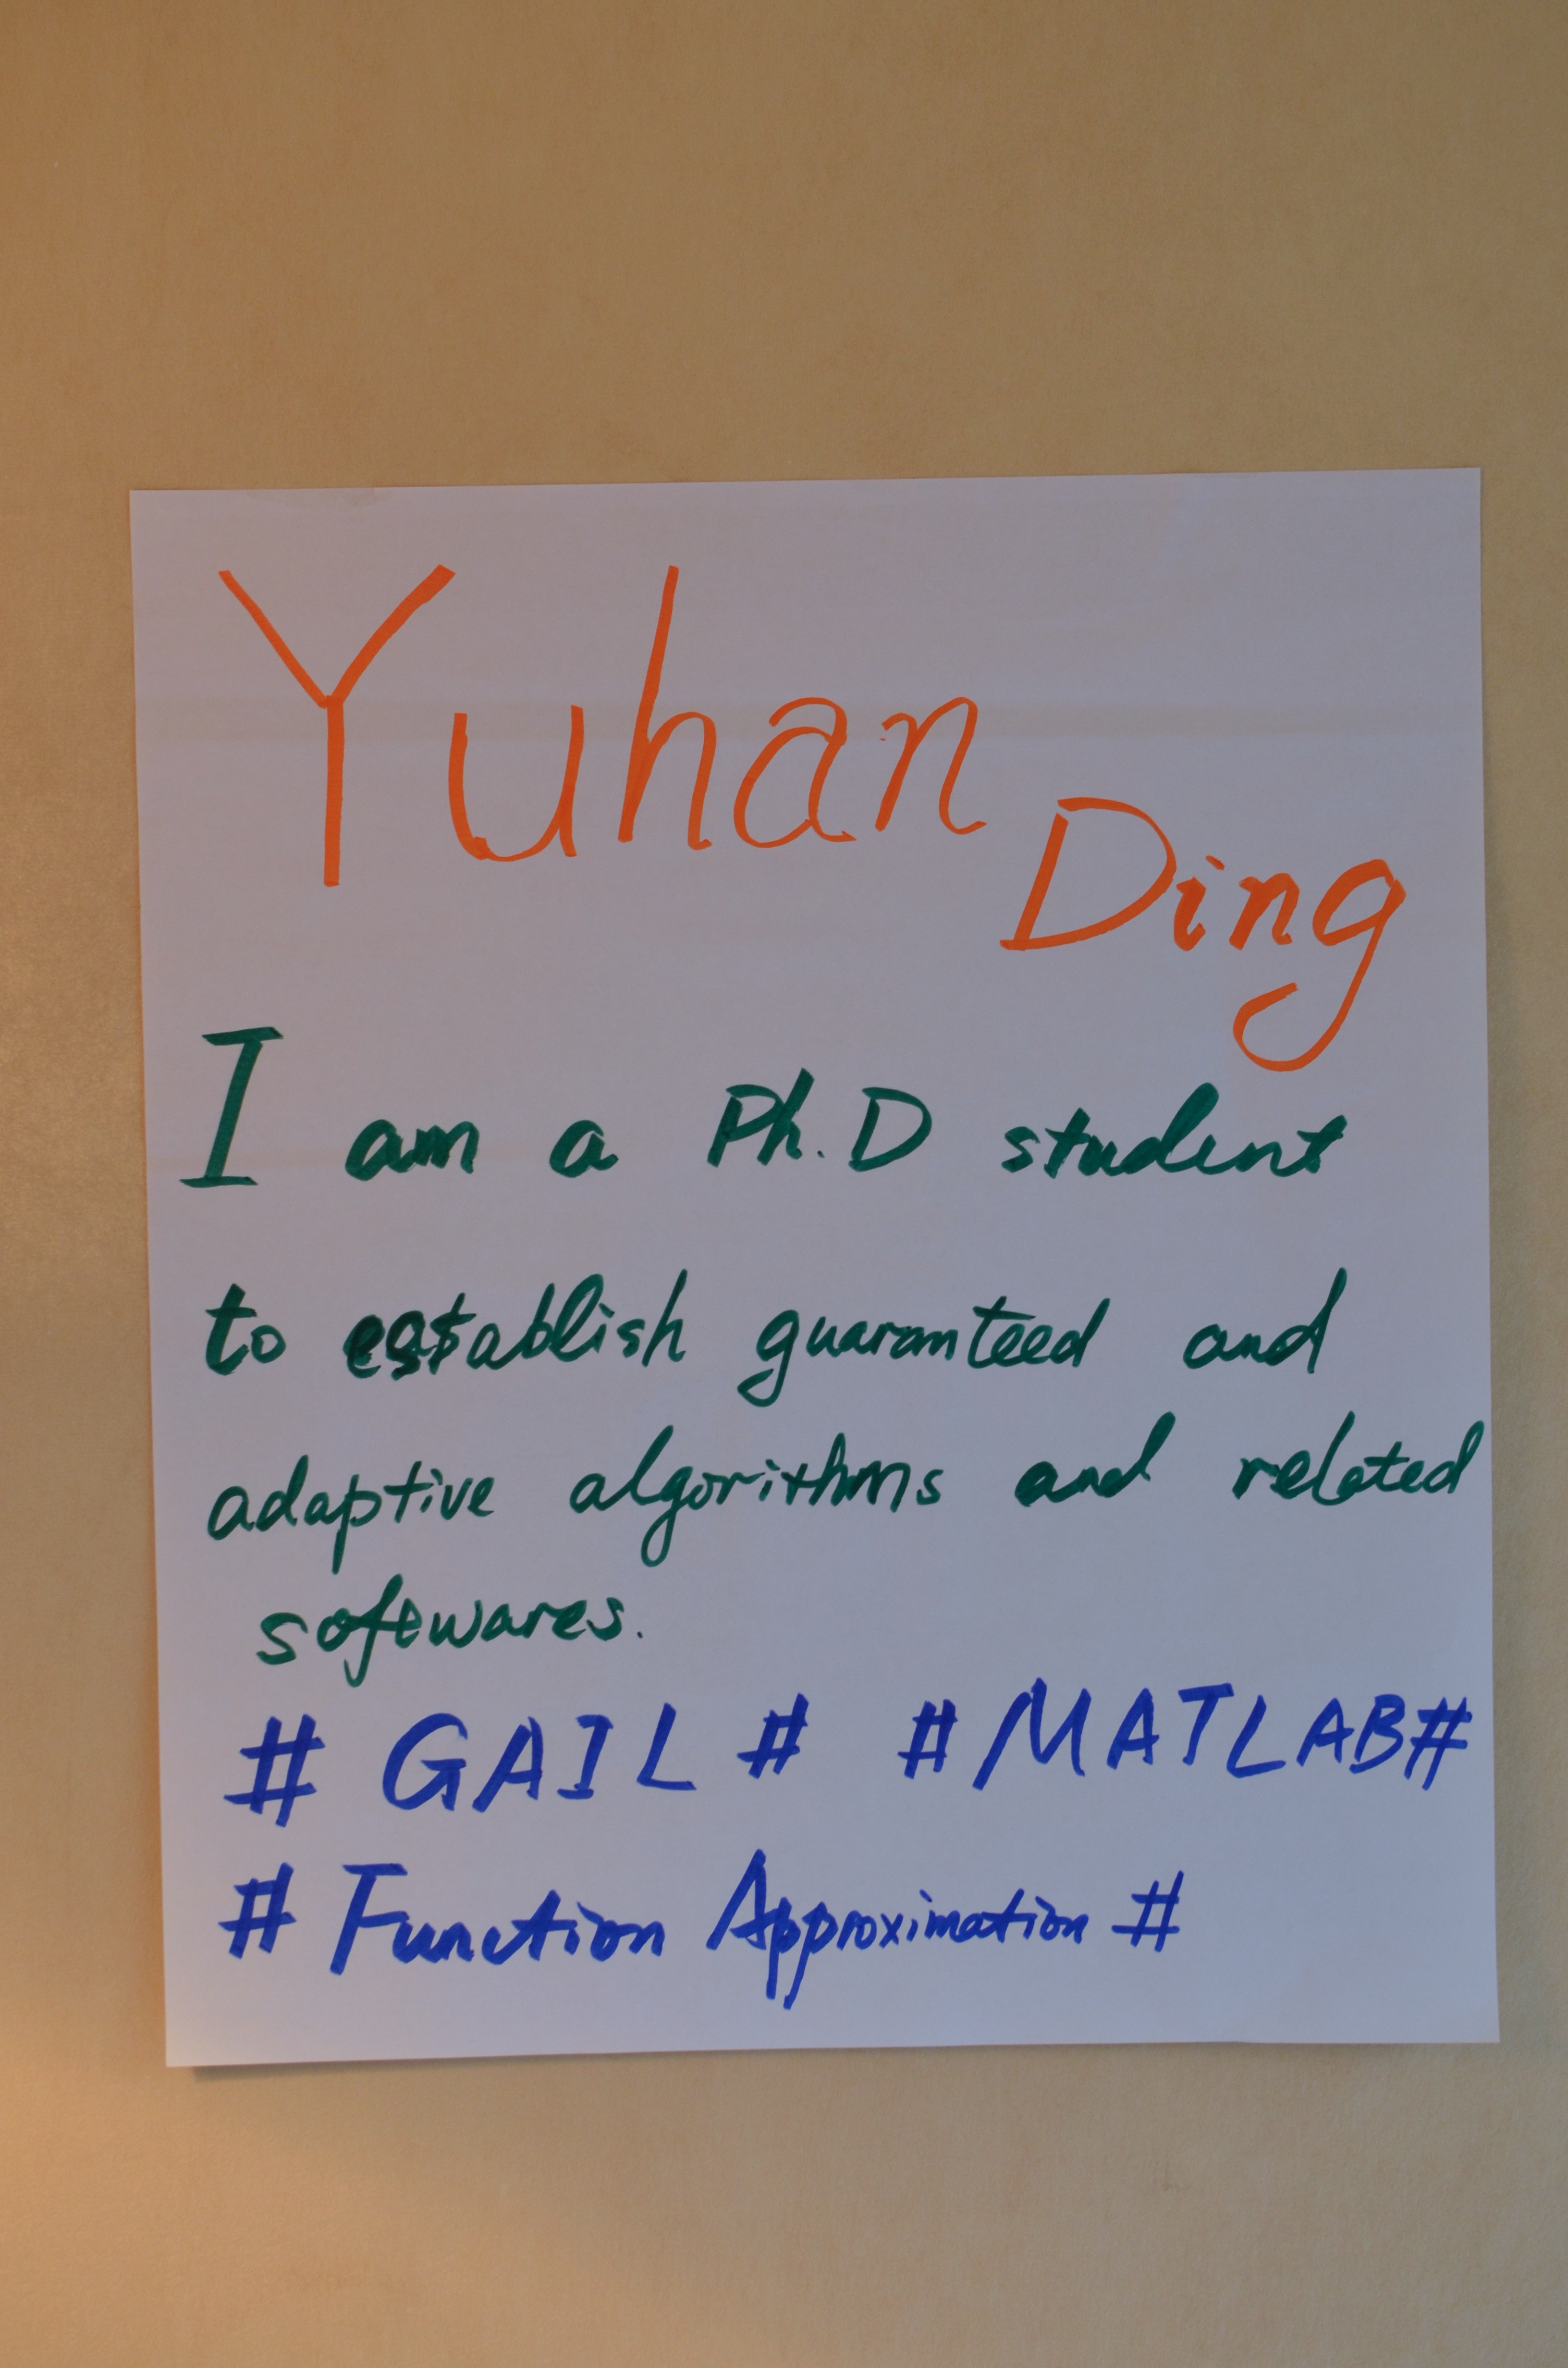 Yuhan
Ding
I am a Ph.D student
to establish guaranteed and
adaptive algorithms and related
softwares.
# GAIL # #MATLAB#
# Function Approximation #